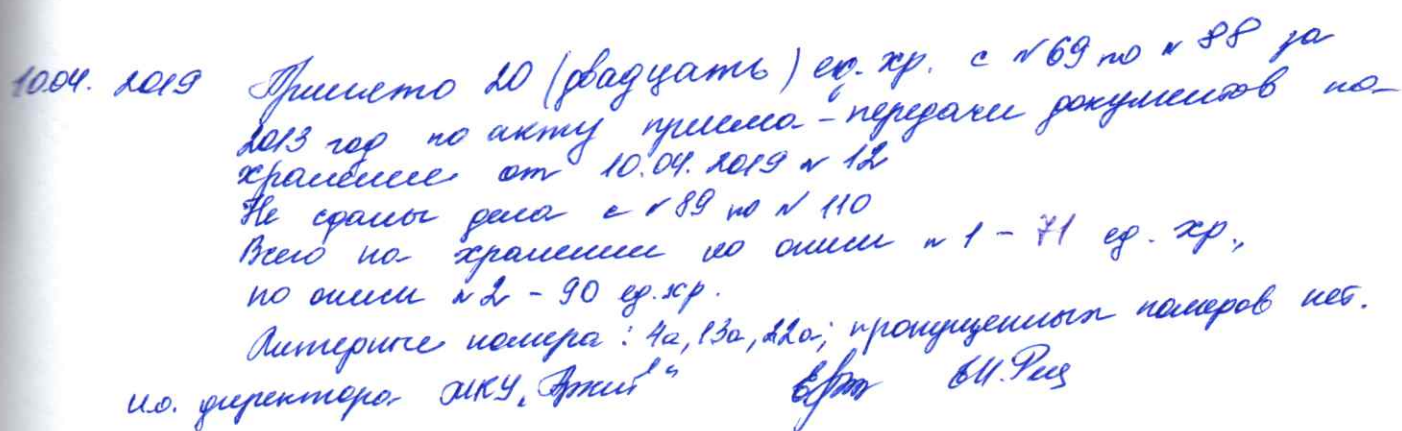 10.04.2019 Принято 20 (двадцать) ед. хр. с №69 по №88 за
2013 год по акту приема-передачи документов на
хранение от 10.04.2019 № 12
Не сданы дела с №89 по № 110
Всего на хранении по описи №1 - 71 ед. хр.,
по описи №2 - 90 ед. хр.
Литерные номера: 4а, 13а, 22а; пропущенных номеров нет.
И.о. директора МКУ „Архив"